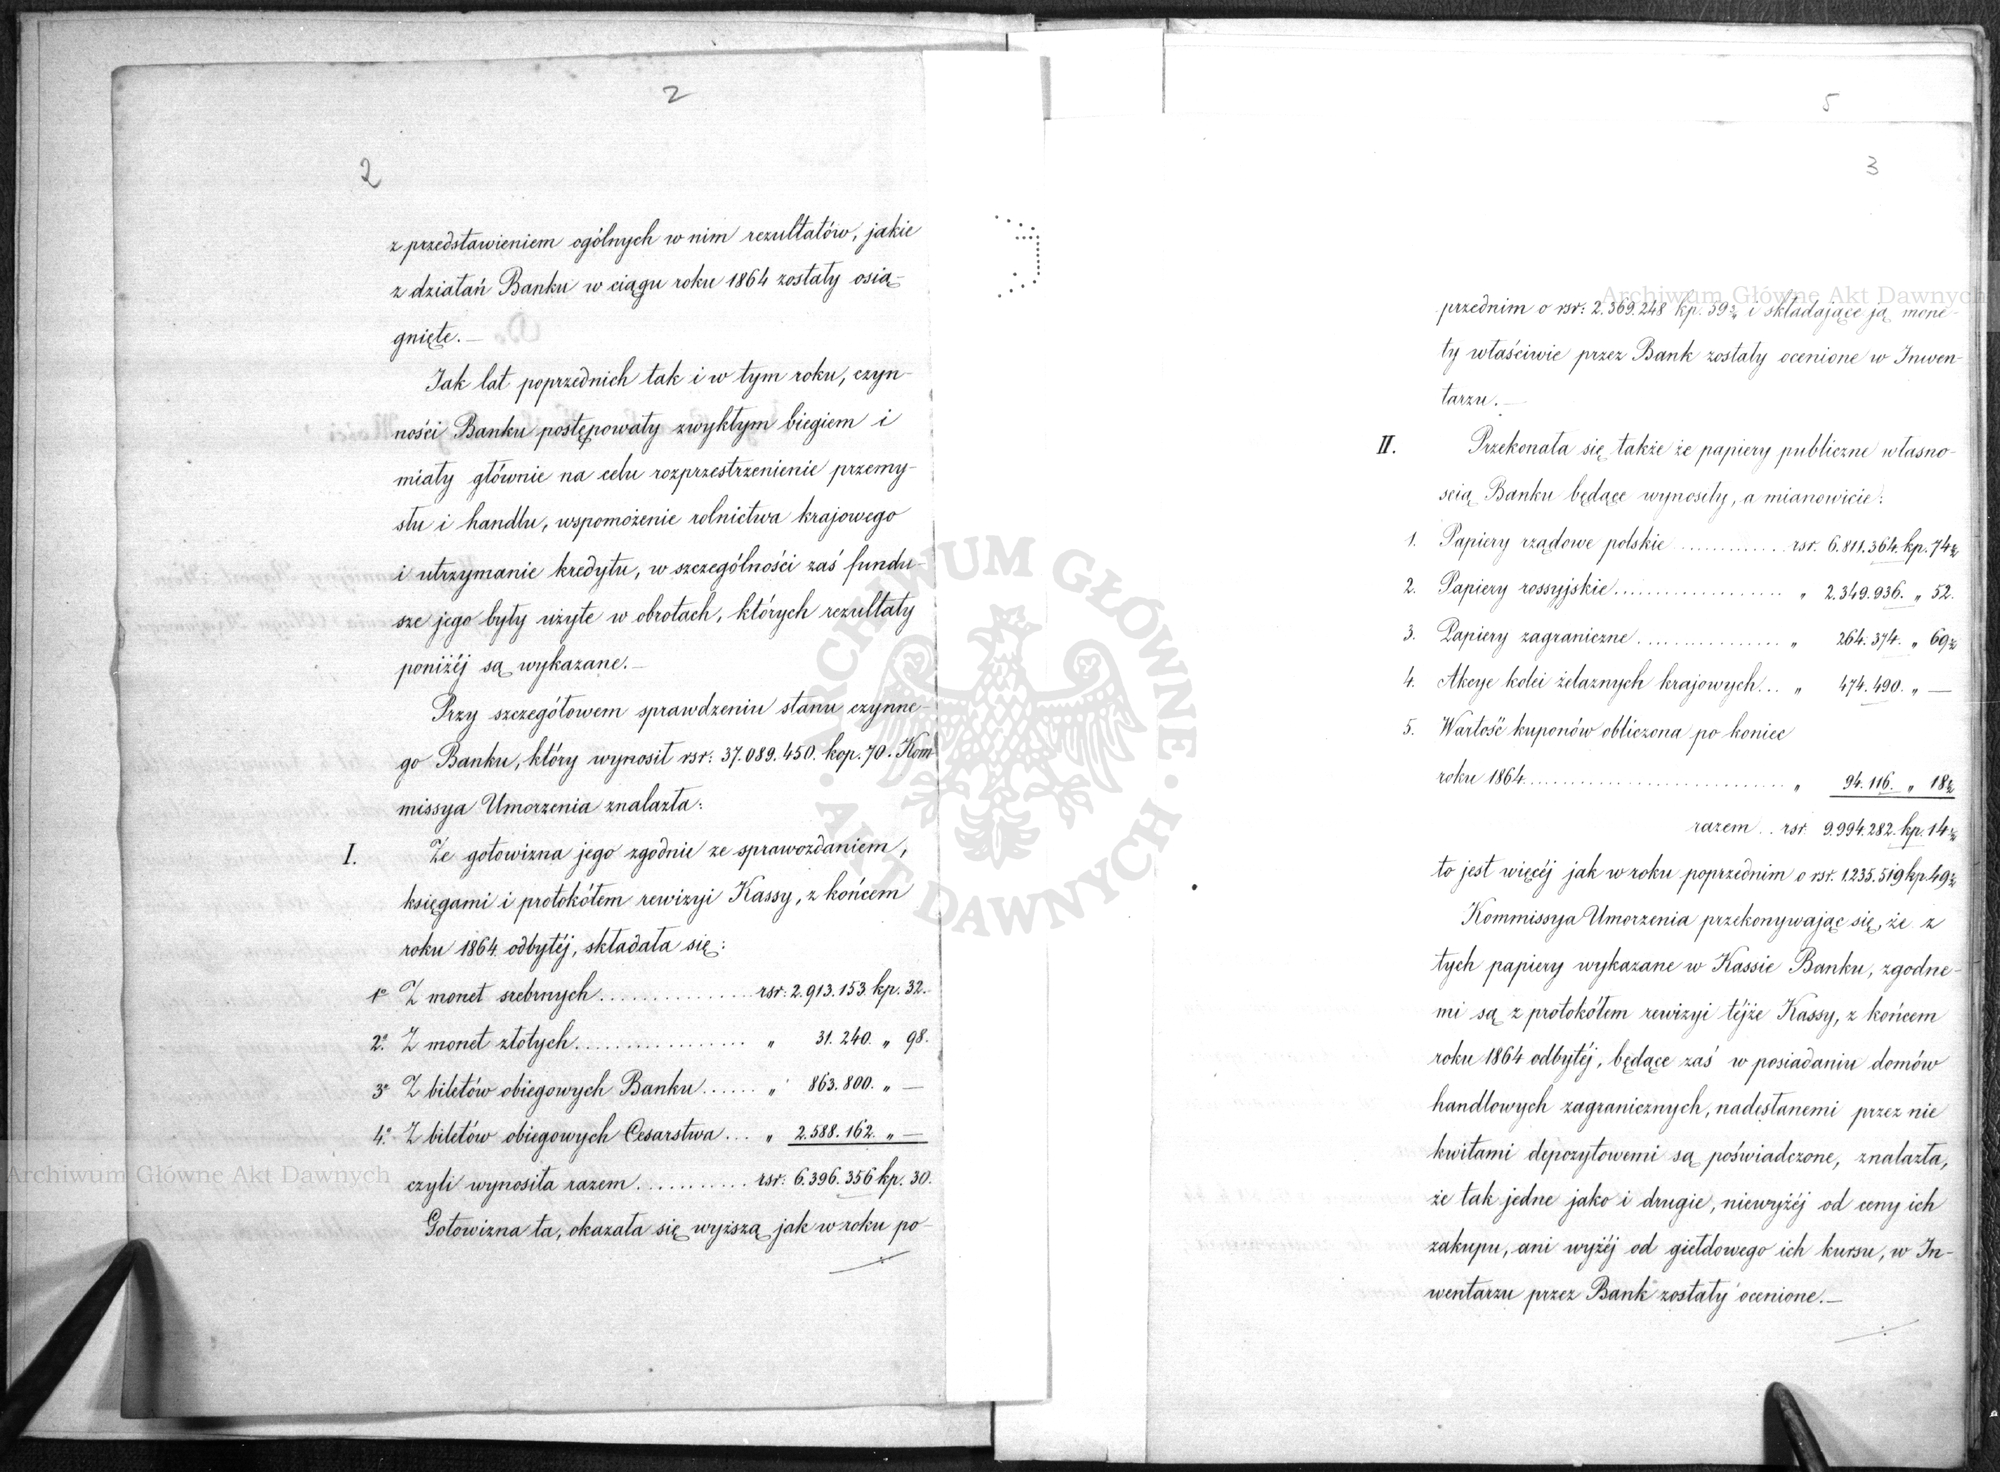 2
2
z przedstawieniem ogólnych w nim rezultatów, jakie
z działań Banku w ciągu roku 1864 zostały osią-
gnięte.—
Jak lat poprzednich tak i w tym roku, czyn-
ności Banku postępowały zwykłym biegiem i
miały głównie na celu rozprzestrzenienie przemy-
słu i handlu, wspomożenie rolnictwa krajowego
i utrzymanie kredytu, w szczególności zaś fundu-
sze jego były użyte w obrotach, których rezultaty
poniżéj są wykazane.—
Przy szczegółowem sprawdzeniu stanu czynne-
go Banku, który wynosił rsr: 37.089.450. kop. 70. Kom
missya Umorzenia znalazła:
I. Że gotowizna jego zgodnie ze sprawozdaniem,
księgami i protokółem rewizyi Kassy, z końcem
roku 1864 odbytéj, składała się:
1º Z monet srebrnych............... rsr: 2.913.153 kp. 32.
2º Z monet złotych................. „ 31.240. „ 98.
3º Z biletów obiegowych Banku...... „ 863.800. „ —
4º Z biletów obiegowych Cesarstwa... „ 2.588.162. „ —
czyli wynosiła razem........... rsr: 6.396.356 kp. 30.
Gotowizna ta, okazała się wyższą jak w roku po-
5
3
przednim o rsr: 2.369.248 kp. 39½ i składające ją mone-
ty właściwie przez Bank zostały ocenione w Inwen-
tarzu.—
II. Przekonała się także że papiery publiczne własno-
scią Banku będące wynosiły, a mianowicie:
1. Papiery rządowe polskie ............ rsr. 6.811.364. kp. 74½
2. Papiery rossyjskie................... „ 2.349.936. „ 52.
3. Papiery zagraniczne................ „ 264.374. „ 69½
4. Akcye kolei żelaznych krajowych... „ 474.490. „ —
5. Wartość kuponów obliczona po koniec
roku 1864............................. „ 94.116. „ 18½
razem .. rsr. 9.994.282. kp. 14½
to jest więcéj jak w roku poprzednim o rsr. 1.235.519 kp. 49½
Kommissya Umorzenia przekonywając się, że z
tych papiery wykazane w Kassie Banku, zgodne-
mi są z protokółem rewizyi téjże Kassy, z końcem
roku 1864 odbytéj, będące zaś w posiadaniu domów
handlowych zagranicznych, nadesłanemi przez nie
kwitami depozytowemi są poświadczone, znalazła,
że tak jedne jako i drugie, niewyżéj od ceny ich
zakupu, ani wyżéj od giełdowego ich kursu, w In-
wentarzu przez Bank zostały ocenione.—
ARCHIWUM GŁÓWNE
AKT DAWNYCH
Archiwum Główne Akt Dawnych
Archiwum Główne Akt Dawnych